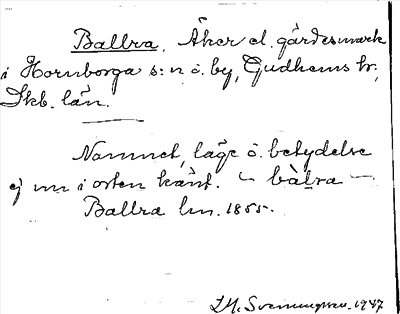 Ballra. Åker el. gärdesmark
i Hornborga s:n o. by, Gudhems hr,
Skb. län.
Namnet, läge o. betydelse
ej nu i orten känt. ~ bàlra ~
Ballra lm. 1855.
J. H. Svenungsson. 1947